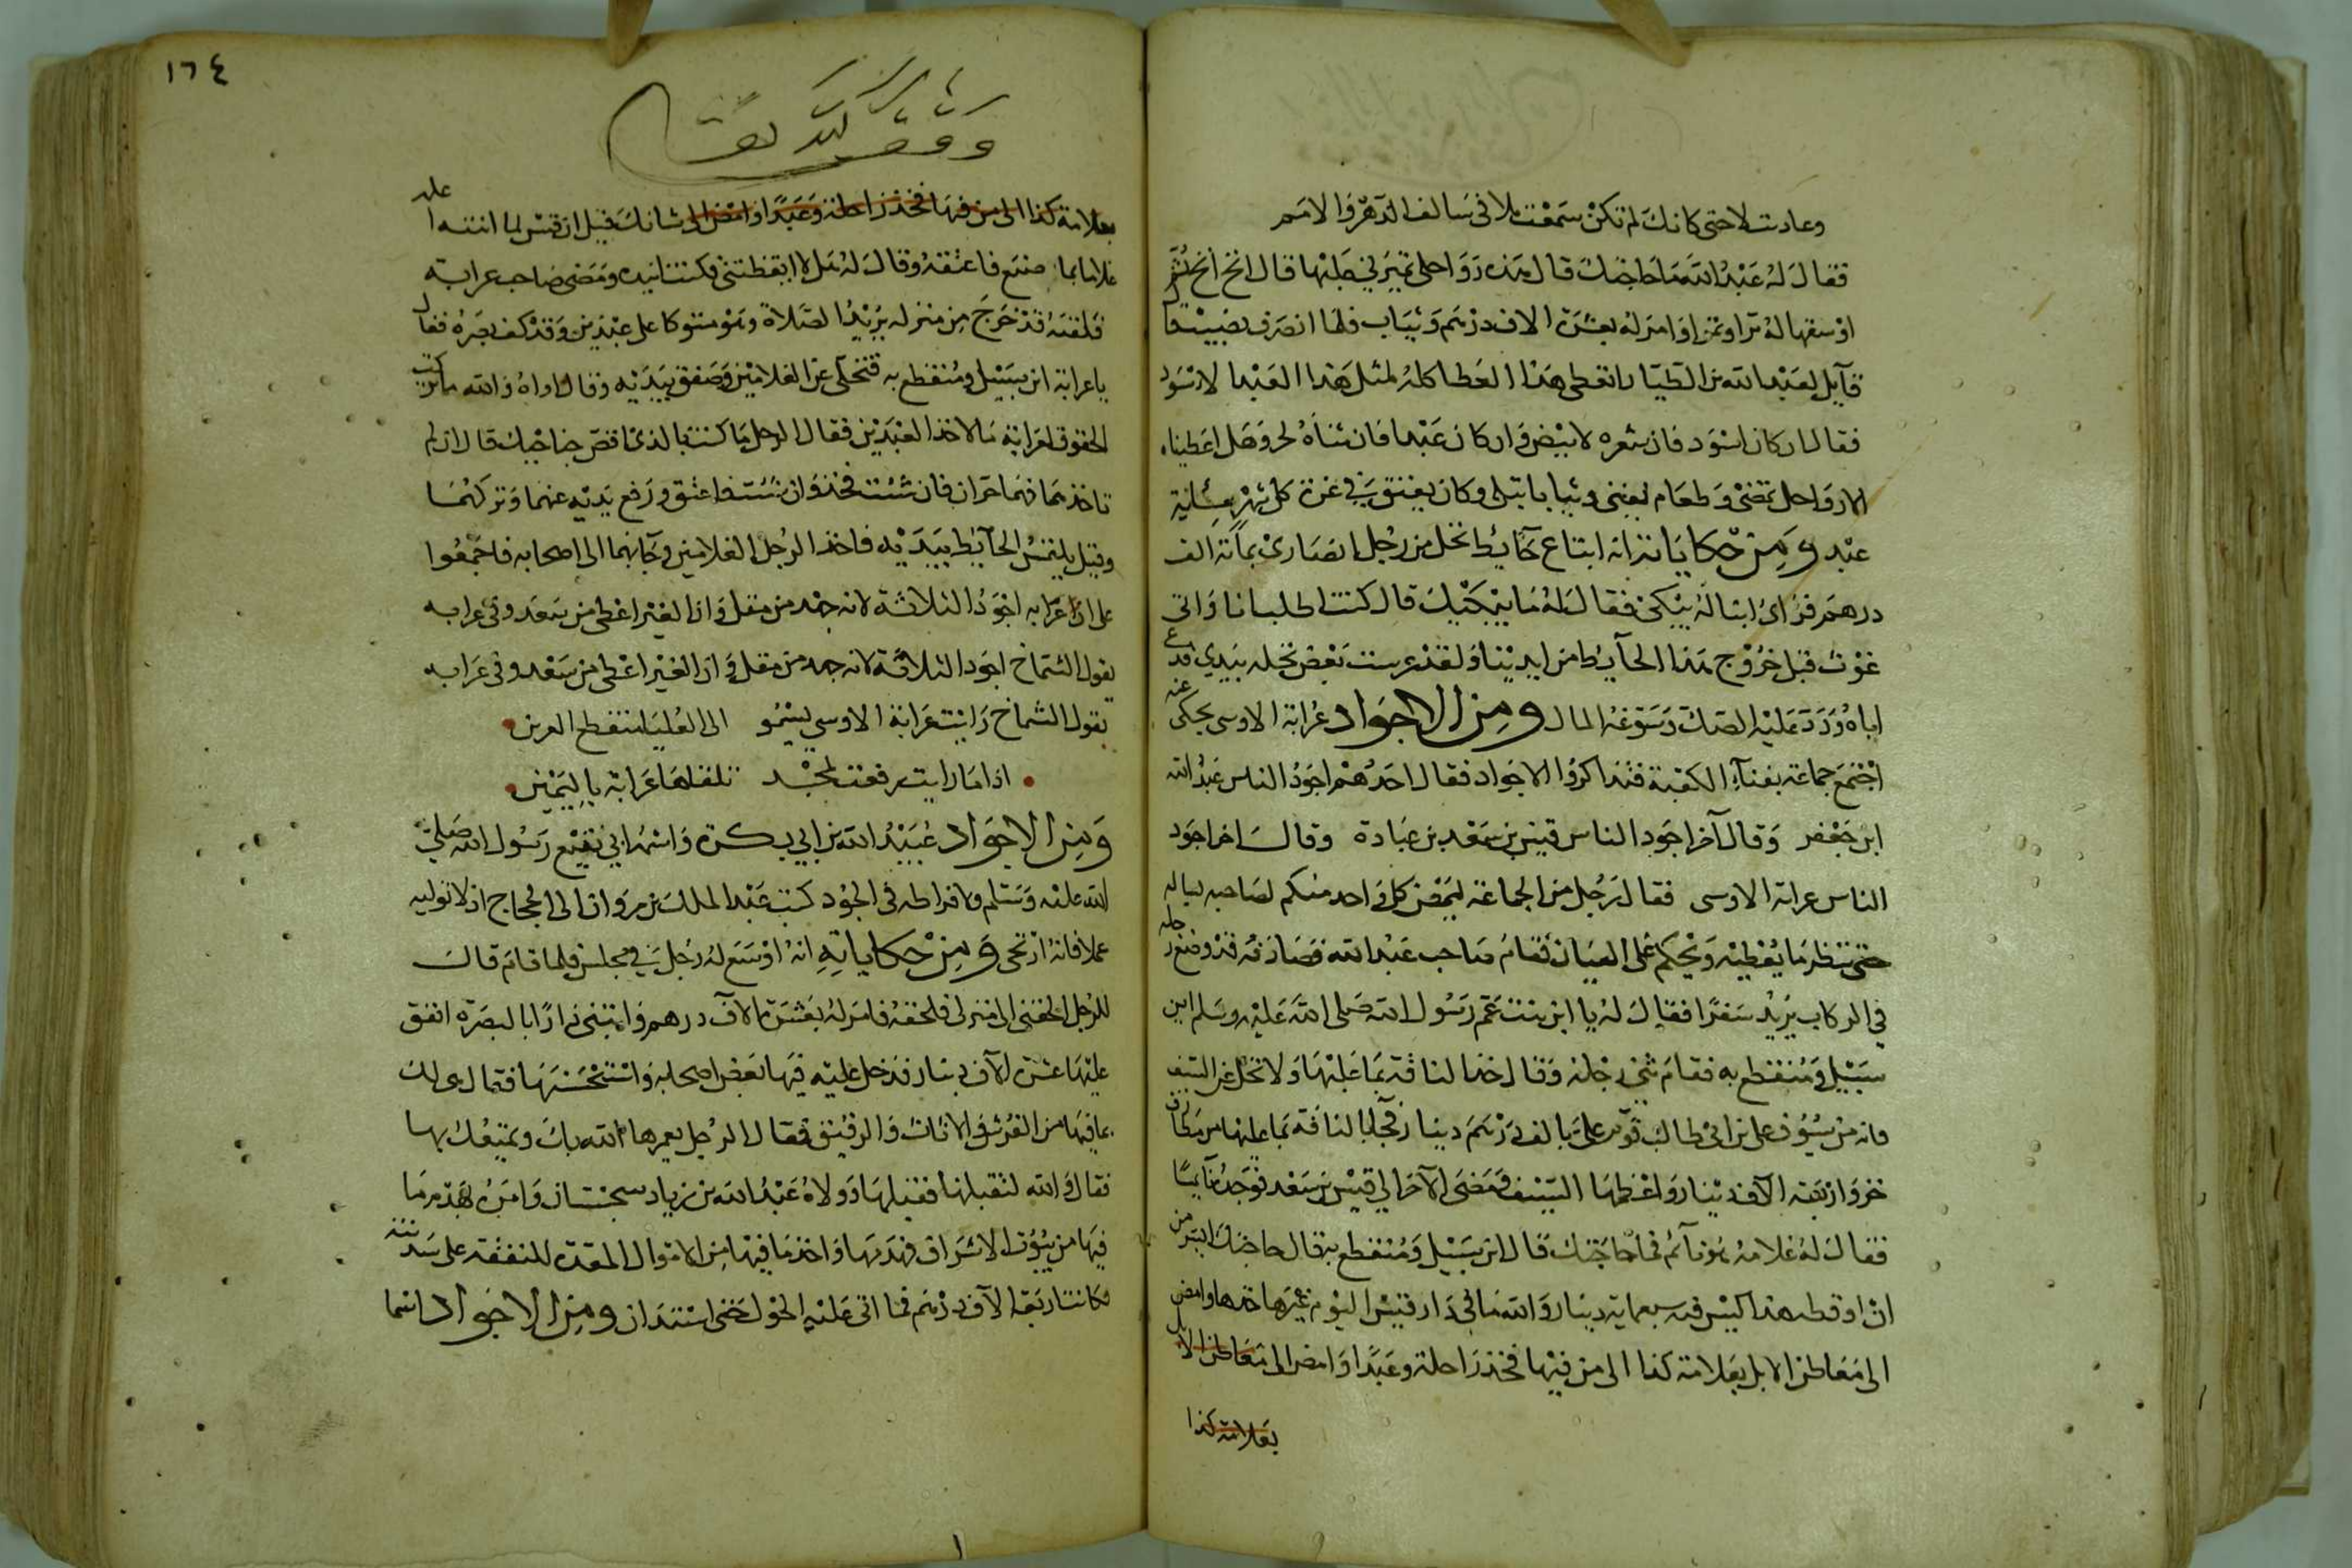 وعادت لاحتى كانك لم تكن سمعت بلا فى سالف الدهر والامم
فقال له عبد الله ما حاجتك قال هذه رواحلى تميرنى عليها قال انخ انخ ثم
اوسقها له برا وتمرا وامر له بعشرة الاف درهم وثياب فلما انصرف نصيب قا
قايل لعبد الله بن الطيار اتعطى هذا العطا كله لمثل هذا العبد الاسود
فقال ان كان اسود فان شعره لابيض وان كان عبدا فان ثناه لحر وهل اعطيناه
الا رواحل تمضى وطعام يفنى وثيابا تبلى وكان يعتق فى غرة كل شهر مائة
عبد ومن حكاياته انه ابتاع حايط نخل من رجل انصارى بمائة الف
درهم فراى ابنا له يبكى فقال له ما يبكيك قال كنت اطلب انا وابى
موت قبل خروج هذا الحايط من ايدينا ولقد غرست بعض نخله بيدى فدعى
اباه ورد عليه الصك وسوغه المال ومن الاجواد عرابة الاوسى يحكى عنه
اجتمع جماعة بفناء الكعبة فتذاكروا الاجواد فقال احدهم اجود الناس عبد الله
ابن جعفر وقال آخر اجود الناس قيس بن سعد بن عبادة وقال اخر اجود
الناس عرابة الاوسى فقال رجل من الجماعة ليمض كل واحد منكم لصاحبه يساله
حتى ننظر ما يعطيه ويحكم على العيان فقام صاحب عبد الله فصادفه قد وضع رجله
فى الركاب يريد سفرا فقال له يا ابن بنت عم رسول الله صلى الله عليه وسلم ابن
سبيل ومنقطع به فقام ثنى رجله وقال خذ الناقة بما عليها ولا تخل عن السيف
فانه من سيوف على بن ابى طالب قوم على بالف درهم دينار فجا بالناقة بما عليها من مطارف
خز واربعة الاف دينار واعظمها السيف ومضى الآخر الى قيس بن سعد فوجده نايما
فقال له غلامه هو نائم فما حاجتك قال ابن سبيل ومنقطع به قال حاجتك ايسر من
ان اوقظه هذا كيس فيه سبعماية دينار والله ما فى دار قيس اليوم غيرها خذها وامض
الى معاطن الابل بعلامة كذا الى من فيها فخذ راحلة وعبدا وامض الى معاطن الابل
بعلامة كذا
١٦٤
وقف لله تعالى
بعلامة كذا الى من فيها فخذ راحلة وعبدا وامض الى شانك قيل ان قيس لما انتبه اعلمه
غلامه بما صنع فاعتقه وقال له هلا ايقظتنى فكنت ازيده ومضى صاحب عرابة
فلقيه قد خرج من منزله يريد الصلاة وهو متوكا على عبدين وقد كف بصره فقال
يا عرابة ابن سبيل ومنقطع به فتخلى عن الغلامين وصفق بيديه وقال اواه والله ما تركت
الحقوق لعرابة مالا خذ العبدين فقال الرجل ما كنت بالذى اقص جناحيك قال ان لم
تاخذهما فهما حران فان شئت فخذ وان شئت فاعتق ورفع يديه عنهما وتركهما
وقيل يلتمس الحايط بيديه فاخذ الرجل الغلامين وجا بهما الى اصحابه فاجمعوا
على ان عرابه اجود الثلاثة لانه جهد من مقل وان الغير اعطى من سعة وفى عرابه
يقول الشماخ اجود الثلاثة لانه جهد من مقل وان الغير اعطى من سعة وفى عرابه
يقول الشماخ رايت عرابة الاوسى يسمو الى العليا منقطع القرين
اذا ما رايت رفعت لمجد تلقاها عرابة باليمين
ومن الاجواد عبيد الله بن ابى بكرة واسمه ابى نفيع رسول الله صلى
الله عليه وسلم ولافراطه فى الجود كتب عبد الملك بن مروان الى الحجاج ان لا توليه
عملا فانه اريحى ومن حكاياته انه اوسع له رجل فى مجلس فلما قام قال
للرجل الحقنى الى منزلى فلحقه فامر له بعشرة الآف درهم وابتنى دارا بالبصرة انفق
عليها عشرة الآف دينار فدخل عليه فيها بعض اصحابه واستحسنها فقال هى لك
بما فيها من الفرش والاثاث والرقيق فقال الرجل يعمرها الله بك ويمتعك بها
فقال والله لتقبلنها فقبلها وولاه عبد الله بن زياد سجستان وامره بهدم ما
فيها من بيوت الاشراف فهدمها واخذ ما فيها من الاموال المعدة للنفقة على سدنته
فكانت اربعة الآف درهم فما اتى عليه الحول حتى استدان ومن الاجواد اسما